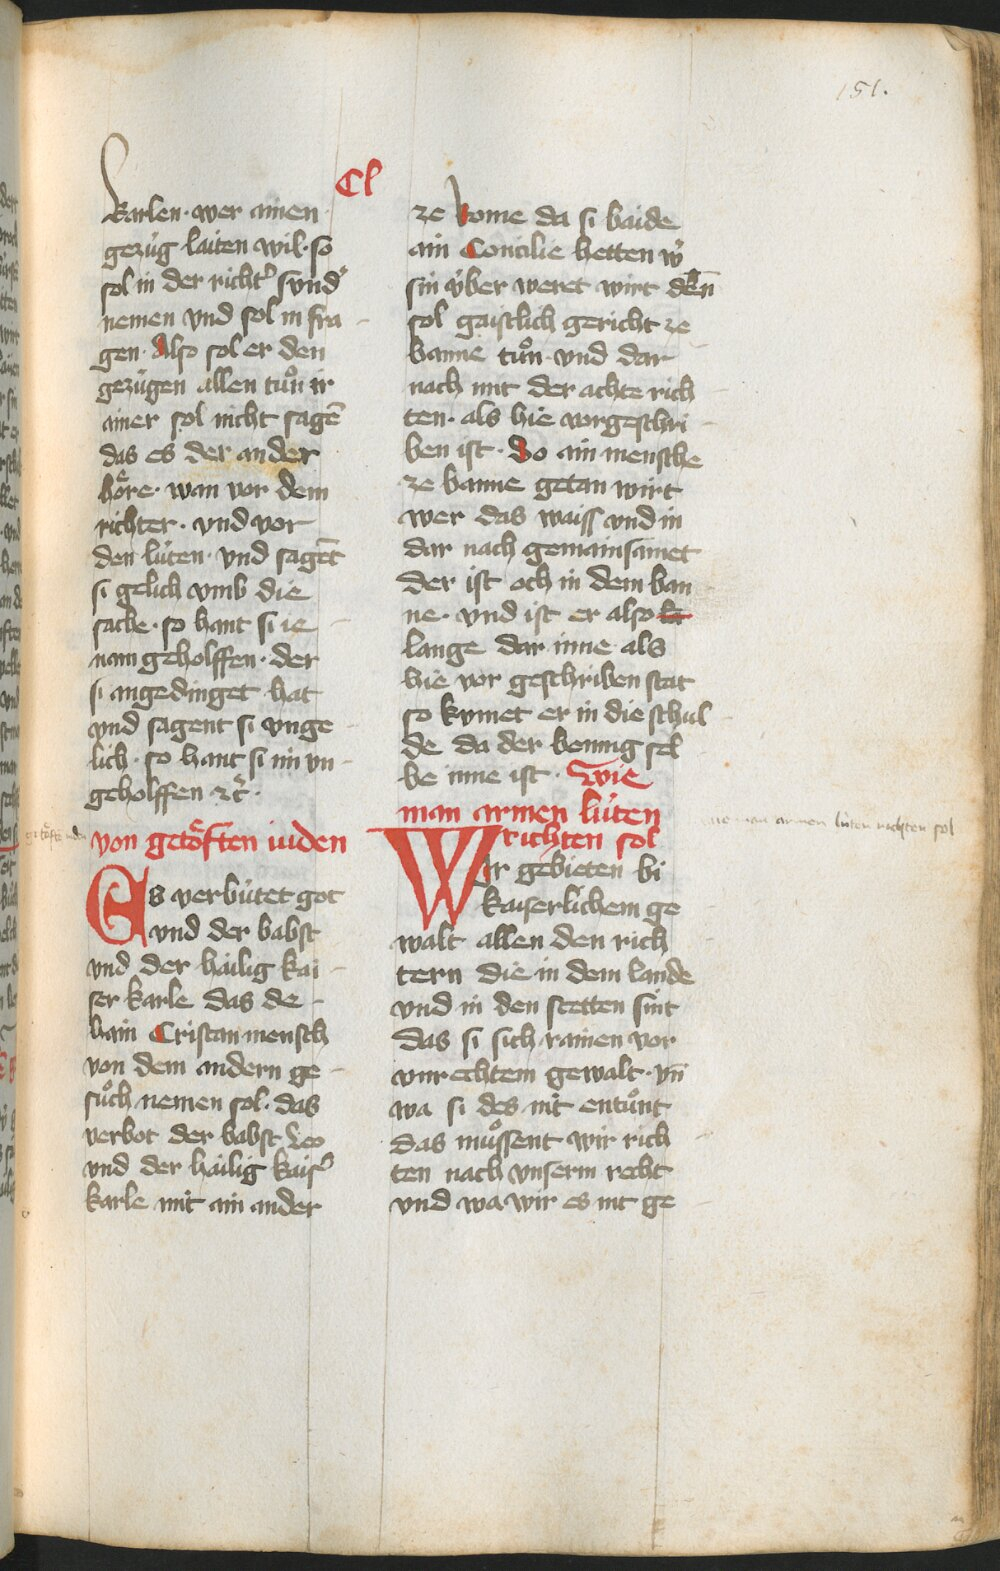 151.
Cl
karlen · wer ainen
gezu̍g laiten wil · so
sol in der richtˀ sundˀ
nemen vnd sol in fra
gen · Also sol er den
gezu̍gen allen tuͦn ir
ainer sol nicht sagē
das es der ander
hoͤre · wan vor dem
richter · vnd vor
den lu̍ten · vnd sagēt
si gelich vmb die
sache · so hant si ie
nam geholffen · der
si angedinget hat
vnd sagent si vnge
lich · so hant si im vn
geholffen ⁊c̄ ·
von getoͤften iuden
Es verbu̍tet got
vnd der babst
vnd der hailig kai
ser karle das de
hain Cristan mensch
von dem andern ge
suͦch nemen sol · das
verbot der babst Leo
vnd der hailig kaisˀ
karle mit ain ander
ze kome da si baide
ain Concilie hetten wˀ
sin u̍ber weret wirt dēn
sol gaistlich gericht ze
banne tuͦn · vnd dar
nach mit der achte rich
ten · als hie vorgeschri
ben ist · So ain mensche
ze banne getan wirt
wer das waiss vnd in
dar nach gemainsamet
der ist och in dem ban
ne · vnd ist er also
lange dar inne als
hie vor geschriben stat
so kvmet er in die schul
de da der hennig sel
be inne ist · Wie
man armen lu̍ten
richten sol
Wir gebieten bi
kaiserlichem ge
walt allen den rich
tern die in dem lande
vnd in den stetten sint
das si sich rainen vor
vnrechtem gewalt · vn̄
wa si des nit entuͦnt
das muͦssent wir rich
ten nach vnserm recht
vnd wa wir es nit ge
getoͤfte iuden
wie man armen lu̍ten richten sol